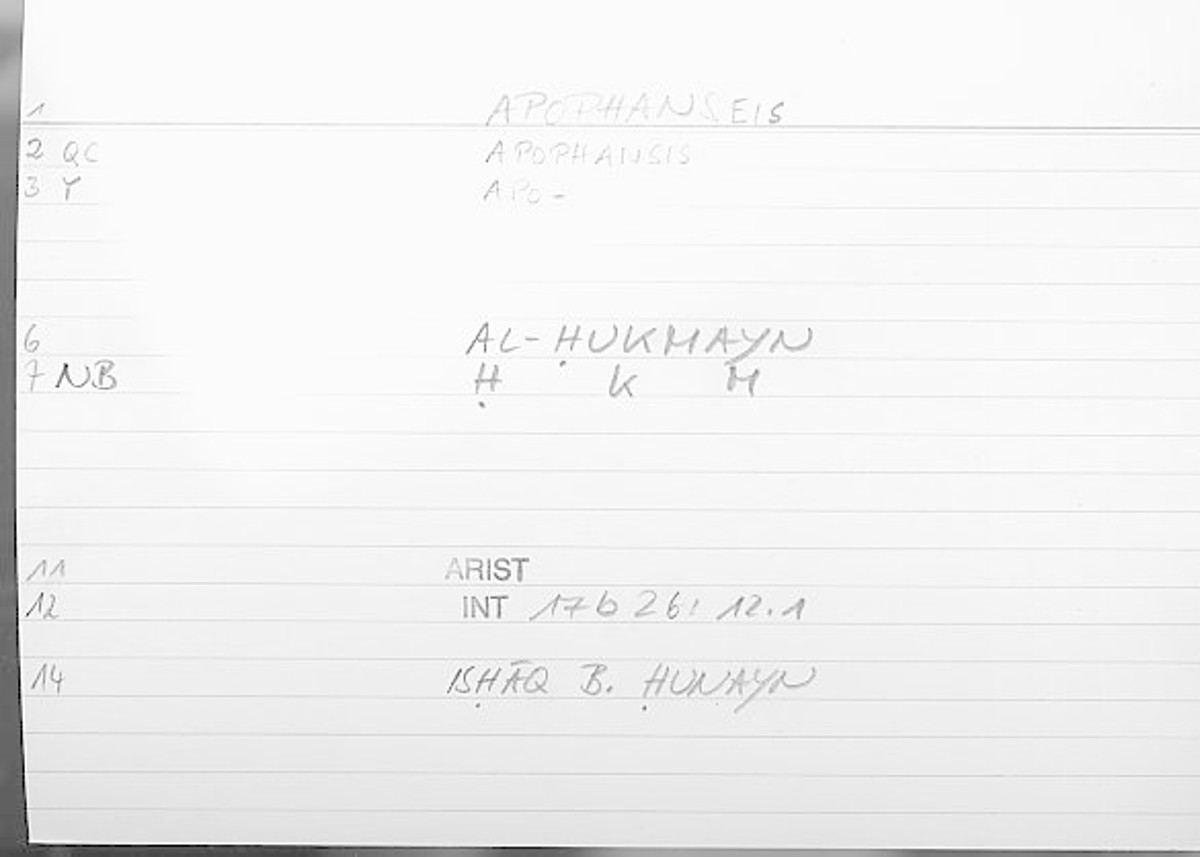 1 APOPHANSEIS
2 QC APOPHANSIS
3 Y APO-
6 AL-ḤUKMAYN
7 NB Ḥ K M
11 ARIST
12 INT 17b 26; 12.1
14 ISḤĀQ B. ḤUNAYN